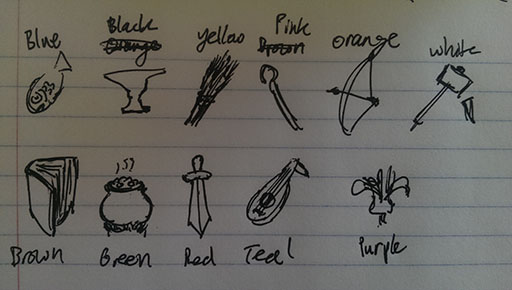 Blue
Black
Orange
yellow
Pink
Brown
orange
white
Brown
Green
Red
Teal
Purple